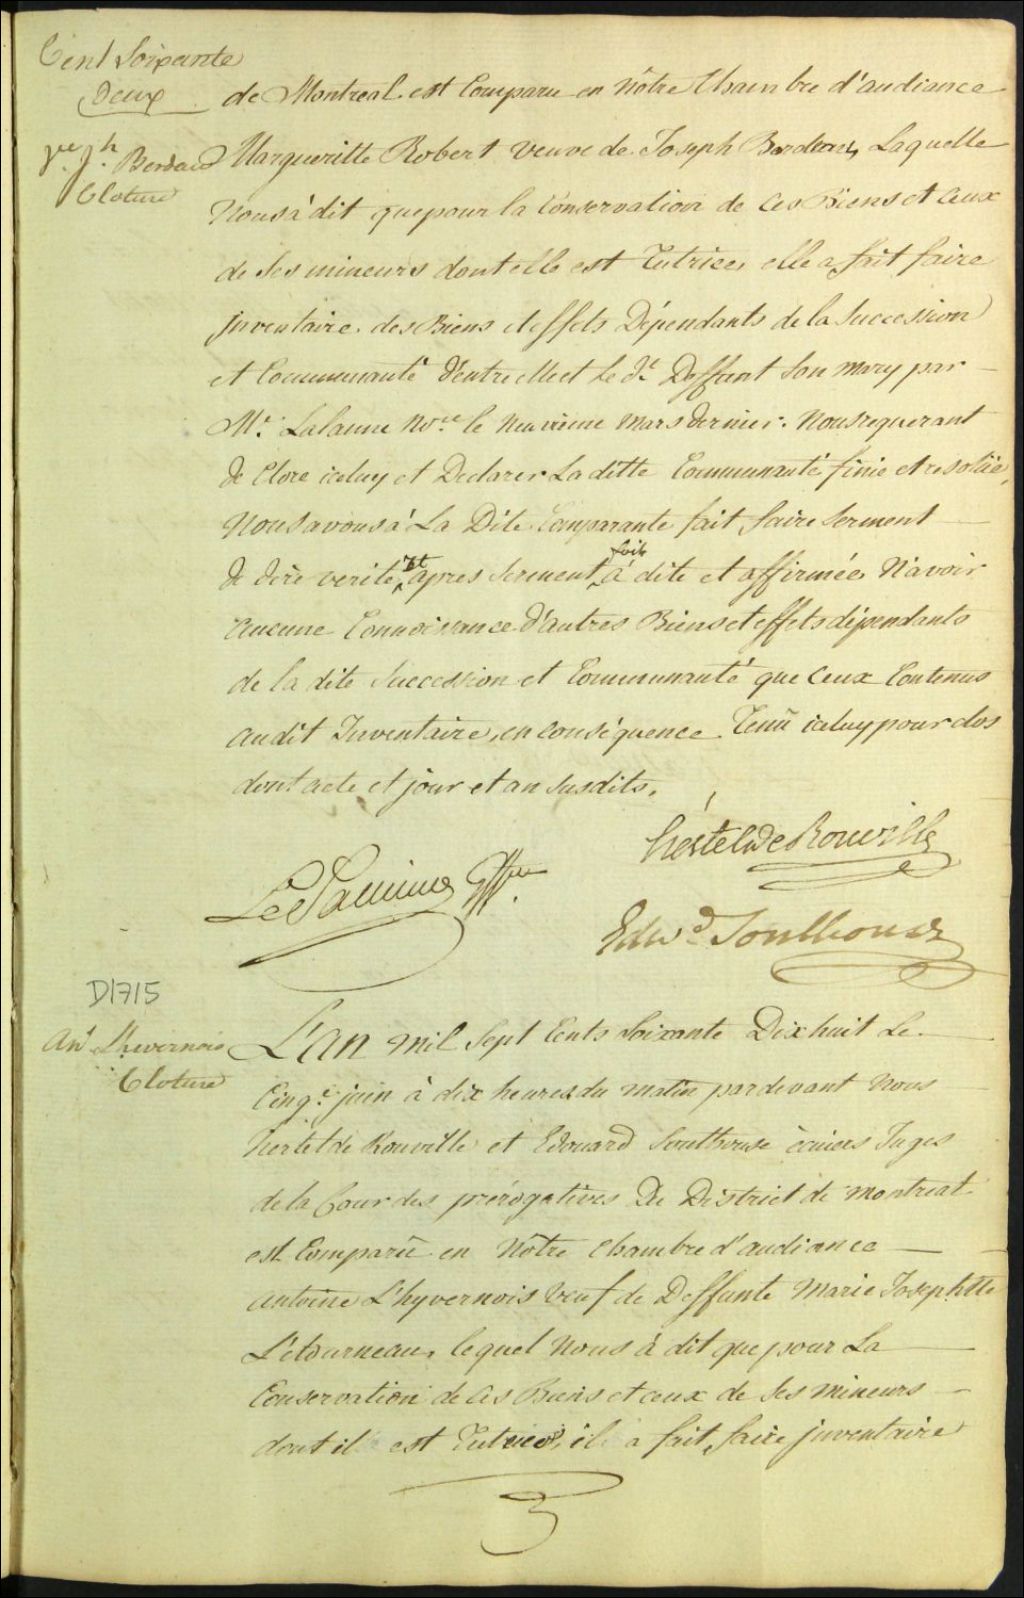 Cent Soixante
Deux
de Montreal est Comparu en Nôtre Chambre d'audiance
Vve Jh Bordeau
Cloture
Margueritte Robert veuve de Joseph Bordeau, Laquelle
Nous à dit que pour la Conservation de ces Biens et Ceux
de Ses mineurs dont elle est Tutrice, elle a fait faire
jnventaire des Biens et effets Dépendants de la Succession
et Communauté d'entre elle et le dt Deffunt Son mary par
Mr. Lalanne Nore le Neuvieme Mars dernier. Nous requerant
de Clore iceluy et Declarer La ditte Communauté finie et resolüe,
Nous avons à La Dite Comparante fait faire Serment
de dire verité, et apres Serment fait à dite et affirmée N'avoir
aucune Connoissance d'autres Biens et effets dépendants
de la dite Succession et Communauté que Ceux Contenus
audit Inventaire, en Conséquence Tenu iceluy pour clos
dont acte et jour et an Susdits.
Hertel De Rouville
Edwd Southouse
D1715
Ant Lhivernois
Cloture
L'an mil Sept Cents Soixante Dix huit Le
Cinqe juin à dix heures du matin par devant Nous
hertel de Rouville et Edouard Southouse écuiers Juges
de la Cour des prérogatives Du District de Montreal
est Comparû en Nôtre Chambre d'audiance
antoine L'hyvernois Veuf de Deffunte Marie Josephtte
L'étourneau, lequel Nous à dit que pour La
Conservation de Ces Biens et ceux de Ses mineurs
dont il est Tuteur, il a fait faire jnventaire